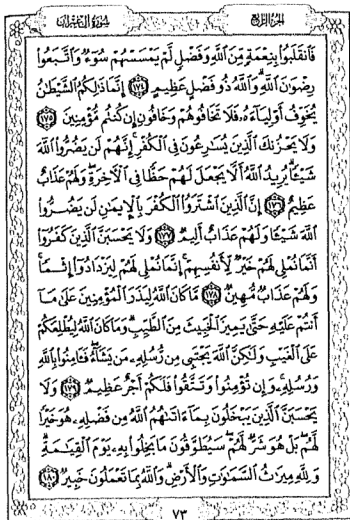 الجزء الرابع
سورة آل عمران
فَٱنقَلَبُوا۟ بِنِعْمَةٍ مِّنَ ٱللَّهِ وَفَضْلٍ لَّمْ يَمْسَسْهُمْ سُوٓءٌ وَٱتَّبَعُوا۟
رِضْوَٰنَ ٱللَّهِ وَٱللَّهُ ذُو فَضْلٍ عَظِيمٍ ١٧٤ إِنَّمَا ذَٰلِكُمُ ٱلشَّيْطَٰنُ
يُخَوِّفُ أَوْلِيَآءَهُۥ فَلَا تَخَافُوهُمْ وَخَافُونِ إِن كُنتُم مُّؤْمِنِينَ ١٧٥
وَلَا يَحْزُنكَ ٱلَّذِينَ يُسَٰرِعُونَ فِى ٱلْكُفْرِ إِنَّهُمْ لَن يَضُرُّوا۟ ٱللَّهَ
شَيْـًٔا يُرِيدُ ٱللَّهُ أَلَّا يَجْعَلَ لَهُمْ حَظًّا فِى ٱلْءَاخِرَةِ وَلَهُمْ عَذَابٌ
عَظِيمٌ ١٧٦ إِنَّ ٱلَّذِينَ ٱشْتَرَوُا۟ ٱلْكُفْرَ بِٱلْإِيمَٰنِ لَن يَضُرُّوا۟
ٱللَّهَ شَيْـًٔا وَلَهُمْ عَذَابٌ أَلِيمٌ ١٧٧ وَلَا يَحْسَبَنَّ ٱلَّذِينَ كَفَرُوٓا۟
أَنَّمَا نُمْلِى لَهُمْ خَيْرٌ لِّأَنفُسِهِمْ إِنَّمَا نُمْلِى لَهُمْ لِيَزْدَادُوٓا۟ إِثْمًا
وَلَهُمْ عَذَابٌ مُّهِينٌ ١٧٨ مَّا كَانَ ٱللَّهُ لِيَذَرَ ٱلْمُؤْمِنِينَ عَلَىٰ مَآ
أَنتُمْ عَلَيْهِ حَتَّىٰ يَمِيزَ ٱلْخَبِيثَ مِنَ ٱلطَّيِّبِ وَمَا كَانَ ٱللَّهُ لِيُطْلِعَكُمْ
عَلَى ٱلْغَيْبِ وَلَٰكِنَّ ٱللَّهَ يَجْتَبِى مِن رُّسُلِهِۦ مَن يَشَآءُ فَـَٔامِنُوا۟ بِٱللَّهِ
وَرُسُلِهِۦ وَإِن تُؤْمِنُوا۟ وَتَتَّقُوا۟ فَلَكُمْ أَجْرٌ عَظِيمٌ ١٧٩ وَلَا
يَحْسَبَنَّ ٱلَّذِينَ يَبْخَلُونَ بِمَآ ءَاتَىٰهُمُ ٱللَّهُ مِن فَضْلِهِۦ هُوَ خَيْرًا
لَّهُم بَلْ هُوَ شَرٌّ لَّهُمْ سَيُطَوَّقُونَ مَا بَخِلُوا۟ بِهِۦ يَوْمَ ٱلْقِيَٰمَةِ
وَلِلَّهِ مِيرَٰثُ ٱلسَّمَٰوَٰتِ وَٱلْأَرْضِ وَٱللَّهُ بِمَا تَعْمَلُونَ خَبِيرٌ ١٨٠
٧٣